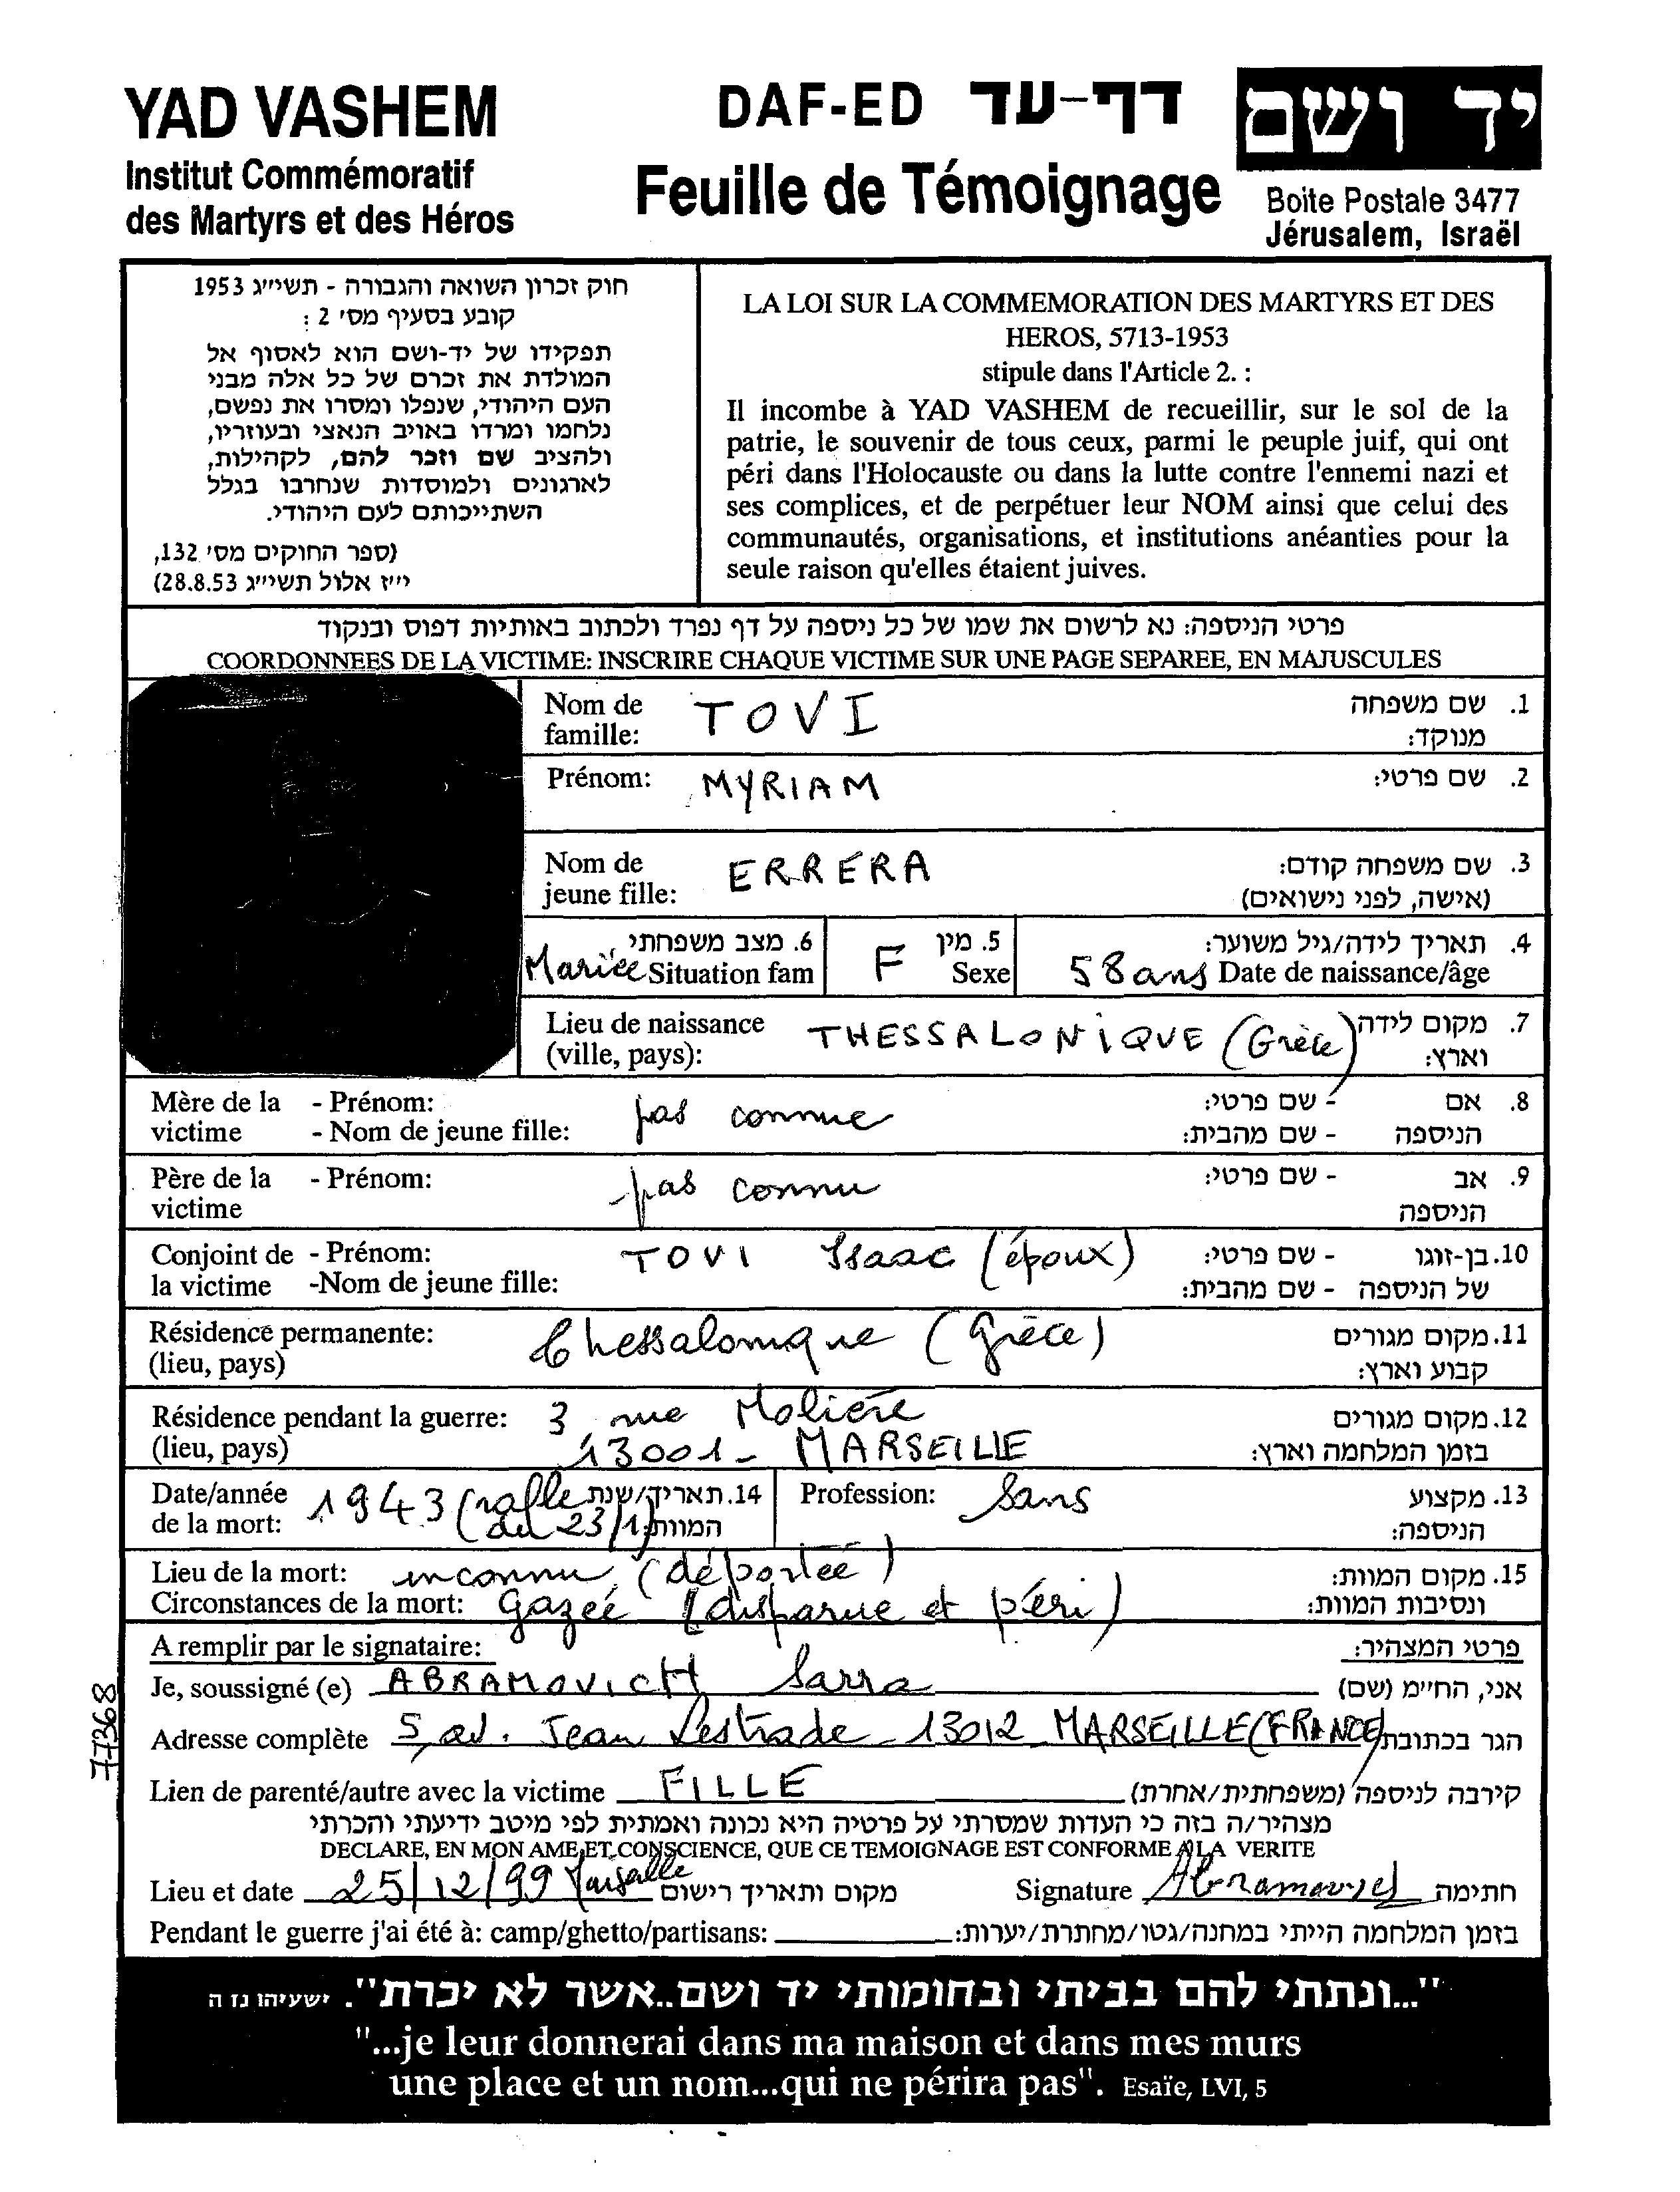 YAD VASHEM
Institut Commémoratif
des Martyrs et des Héros
DAF-ED דף-עד
Feuille de Témoignage
יד ושם
Boite Postale 3477
Jérusalem, Israël
חוק זכרון השואה והגבורה - תשי״ג 1953
קובע בסעיף מס׳ 2 :
תפקידו של יד-ושם הוא לאסוף אל
המולדת את זכרם של כל אלה מבני
העם היהודי, שנפלו ומסרו את נפשם,
נלחמו ומרדו באויב הנאצי ובעוזריו,
ולהציב שם וזכר להם, לקהילות,
לארגונים ולמוסדות שנחרבו בגלל
השתייכותם לעם היהודי.
(ספר החוקים מס׳ 132,
י״ז אלול תשי״ג 28.8.53)
LA LOI SUR LA COMMEMORATION DES MARTYRS ET DES
HEROS, 5713-1953
stipule dans l'Article 2. :
Il incombe à YAD VASHEM de recueillir, sur le sol de la
patrie, le souvenir de tous ceux, parmi le peuple juif, qui ont
péri dans l'Holocauste ou dans la lutte contre l'ennemi nazi et
ses complices, et de perpétuer leur NOM ainsi que celui des
communautés, organisations, et institutions anéanties pour la
seule raison qu'elles étaient juives.
פרטי הניספה: נא לרשום את שמו של כל ניספה על דף נפרד ולכתוב באותיות דפוס ובנקוד
COORDONNEES DE LA VICTIME: INSCRIRE CHAQUE VICTIME SUR UNE PAGE SEPAREE, EN MAJUSCULES
Nom de TOVI 1. שם משפחה
famille: מנוקד:
Prénom: MYRIAM 2. שם פרטי:
Nom de ERRERA 3. שם משפחה קודם:
jeune fille: (אישה, לפני נישואים)
6. מצב משפחתי 5. מין 4. תאריך לידה/גיל משוער:
Mariée Situation fam F Sexe 58 ans Date de naissance/âge
Lieu de naissance THESSALONIQUE (Grèce) 7. מקום לידה
(ville, pays): וארץ:
Mère de la - Prénom: pas connue - שם פרטי: 8. אם
victime - Nom de jeune fille: - שם מהבית: הניספה
Père de la - Prénom: pas connu - שם פרטי: 9. אב
victime הניספה
Conjoint de - Prénom: TOVI Isaac (époux) - שם פרטי: 10. בן-זוגו
la victime -Nom de jeune fille: - שם מהבית: של הניספה
Résidence permanente: Thessalonique (Grèce) 11. מקום מגורים
(lieu, pays) קבוע וארץ:
Résidence pendant la guerre: 3 rue Molière 12. מקום מגורים
(lieu, pays) 13001 - MARSEILLE בזמן המלחמה וארץ:
Date/année 1943 (rafle 14. תאריך/שנת Profession: Sans 13. מקצוע
de la mort: du 23/1) המוות: הניספה:
Lieu de la mort: inconnu (déportée) 15. מקום המוות:
Circonstances de la mort: Gazeé (disparue et péri) ונסיבות המוות:
A remplir par le signataire: פרטי המצהיר:
Je, soussigné (e) ABRAMOVICH Sarra אני, החי״מ (שם)
Adresse complète 5, av. Jean Lestrade 13012 MARSEILLE (FRANCE) הגר בכתובת
Lien de parenté/autre avec la victime FILLE קירבה לניספה (משפחתית/אחרת)
מצהיר/ה בזה כי העדות שמסרתי על פרטיה היא נכונה ואמתית לפי מיטב ידיעתי והכרתי
DECLARE, EN MON AME ET CONSCIENCE, QUE CE TEMOIGNAGE EST CONFORME A LA VERITE
Lieu et date 25/12/99 Marseille מקום ותאריך רישום Signature Abramovich חתימה
Pendant le guerre j'ai été à: camp/ghetto/partisans: בזמן המלחמה הייתי במחנה/גטו/מחתרת/יערות:
77368
"...ונתתי להם בביתי ובחומותי יד ושם..אשר לא יכרת". ישעיהו נז ה
"...je leur donnerai dans ma maison et dans mes murs
une place et un nom...qui ne périra pas". Esaïe, LVI, 5